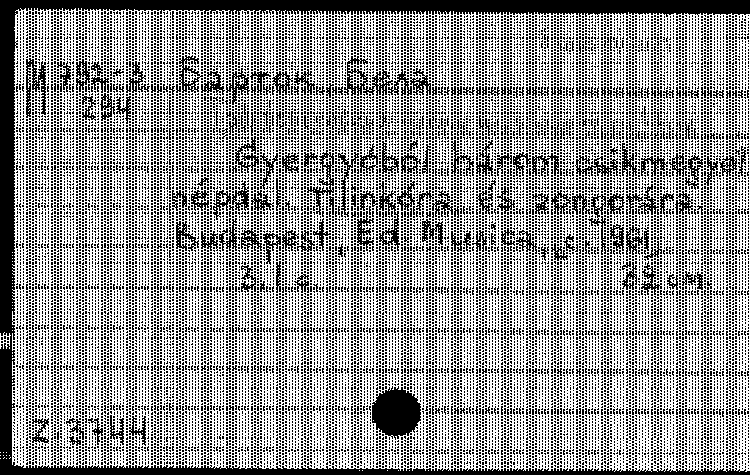 М 792-3 Барток Бела
294
Gyergyóból három csikmegyei
népdal. Tilinkóra és zongorára.
Budapest, Ed. Musica, c. 1961.
3, 1 с. 32 см.
2.3744